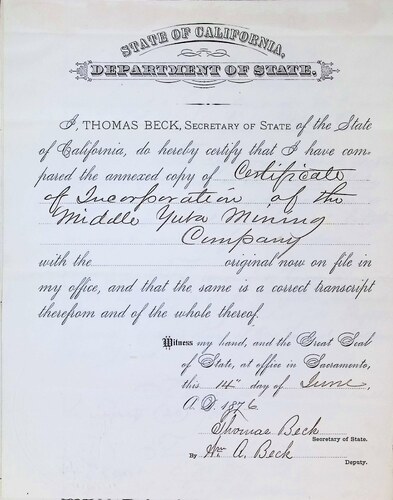 STATE OF CALIFORNIA,
DEPARTMENT OF STATE.
I, THOMAS BECK, SECRETARY OF STATE of the State
of California, do hereby certify that I have com-
pared the annexed copy of Certificate
of Incorporation of the
Middle Yuba Mining
Company
with the original now on file in
my office, and that the same is a correct transcript
therefrom and of the whole thereof.
Witness my hand, and the Great Seal
of State, at office in Sacramento,
this 14th day of June,
A. D. 1876
Thomas Beck
Secretary of State.
By Wm A. Beck
Deputy.